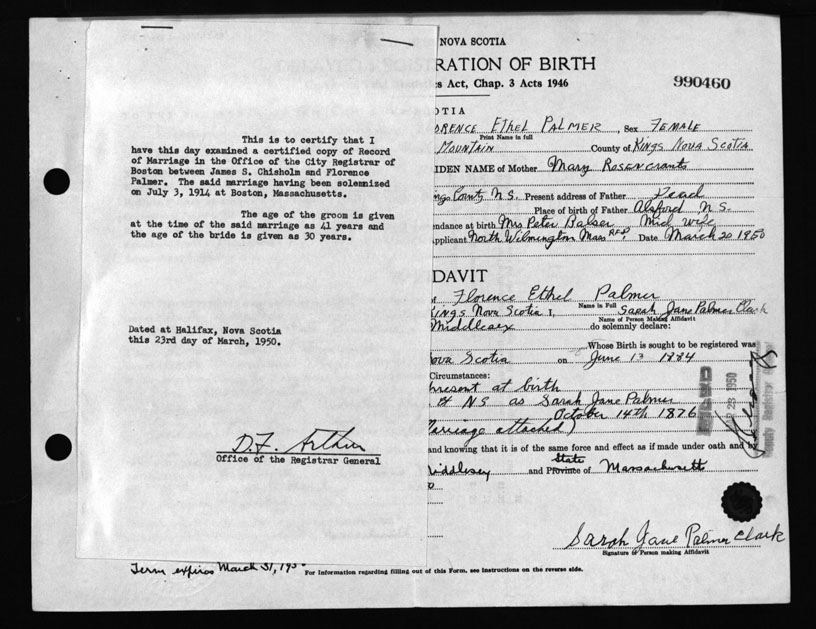 This is to certify that I
have this day examined a certified copy of Record
of Marriage in the Office of the City Registrar of
Boston between James S. Chisholm and Florence
Palmer. The said marriage having been solemnized
on July 3, 1914 at Boston, Massachusetts.
The age of the groom is given
at the time of the said marriage as 41 years and
the age of the bride is given as 30 years.
Dated at Halifax, Nova Scotia
this 23rd day of March, 1950.
D. F. Arthur
Office of the Registrar General
NOVA SCOTIA
RATION OF BIRTH
s Act, Chap. 3 Acts 1946
990460
OTIA
ORENCE ETHEL PALMER, Sex FEMALE
Print Name in full
MOUNTAIN County of KINGS NOVA SCOTIA
IDEN NAME of Mother Mary Rosencrants
ngs County N.S. Present address of Father Dead
Place of birth of Father N.S.
ndance at birth Mrs Peter Mid wife
pplicant North Wilmington Mass RFD. Date March 20 1950
DAVIT
Florence Ethel Palmer
Name in Full
Kings Nova Scotia I, Sarah Jane Palmer Clark
Name of Person Making Affidavit
Middlesex do solemnly declare:
Whose Birth is sought to be registered was
ova Scotia on June 13 1884
Circumstances:
present at birth
N S as Sarah Jane Palmer
October 14th 1876
Marriage attached)
and knowing that it is of the same force and effect as if made under oath and by
State
Middlesex and Province of Massachusetts
23 1950
Sarah Jane Palmer Clark
Signature of Person making Affidavit
Term expires March 31, 195
For Information regarding filling out of this Form, see instructions on the reverse side.